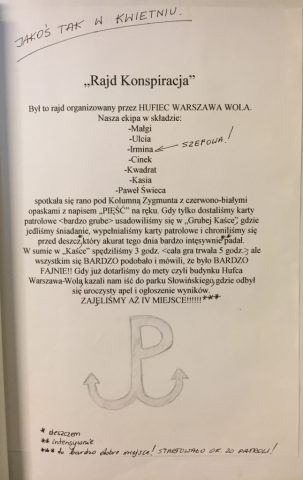 JAKOŚ TAK W KWIETNIU.
„Rajd Konspiracja”
Był to rajd organizowany przez HUFIEC WARSZAWA WOLA.
Nasza ekipa w składzie:
-Małgi
-Ulcia
-Irmina SZEFOWA!
-Cinek
-Kwadrat
-Kasia
-Paweł Święca
spotkała się rano pod Kolumną Zygmunta z czerwono-białymi
opaskami z napisem „PIĘŚĆ” na ręku. Gdy tylko dostaliśmy karty
patrolowe <bardzo grube> usadowiliśmy się w „Grubej Kaśce”, gdzie
jedliśmy śniadanie, wypełnialiśmy karty patrolowe i chroniliśmy się
przed deszcz,*który akurat tego dnia bardzo intęsywnie**padał.
W sumie w „Kaśce” spędziliśmy 3 godz. <cała gra trwała 5 godz.> ale
wszystkim się BARDZO podobało i mówili, że było BARDZO
FAJNIE!! Gdy już dotarliśmy do mety czyli budynku Hufca
Warszawa-Wola,kazali nam iść do parku Słowińskiego,gdzie odbył
się uroczysty apel i ogłoszenie wyników.
ZAJĘLIŚMY AŻ IV MIEJSCE!!!!!!***
* deszczem
** intensywnie
*** to bardzo dobre miejsce! STARTOWAŁO OK. 20 PATROLI!